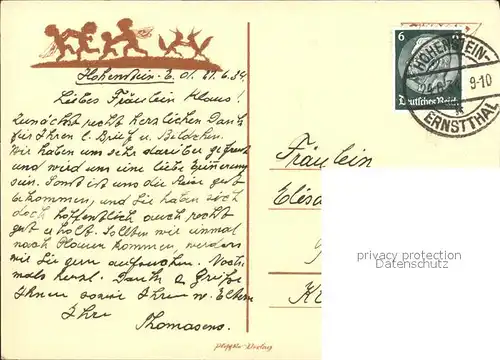 Hohenstein-E. d. 21.6.34
Liebes Fräulein Klaus!
Zunächst recht herzlichen Dank
für Ihren l. Brief u. Bildchen.
Wir haben uns sehr darüber gefreut
und wird uns eine liebe Erinnerung
sein. Sonst ist uns die Reise gut
bekommen, und Sie haben sich
doch hoffentlich auch recht
gut erholt. Sollten wir einmal
nach Plauen kommen, werden
wir Sie gern aufsuchen. Noch-
mals herzl. Dank u. Grüße
Ihnen sowie Ihren w. Eltern
Ihre
Thomasens.
6
Deutsches Reich
HOHENSTEIN-
9-10
ERNSTTHAL
Fräulein
privacy protection
Datenschutz
Verlag